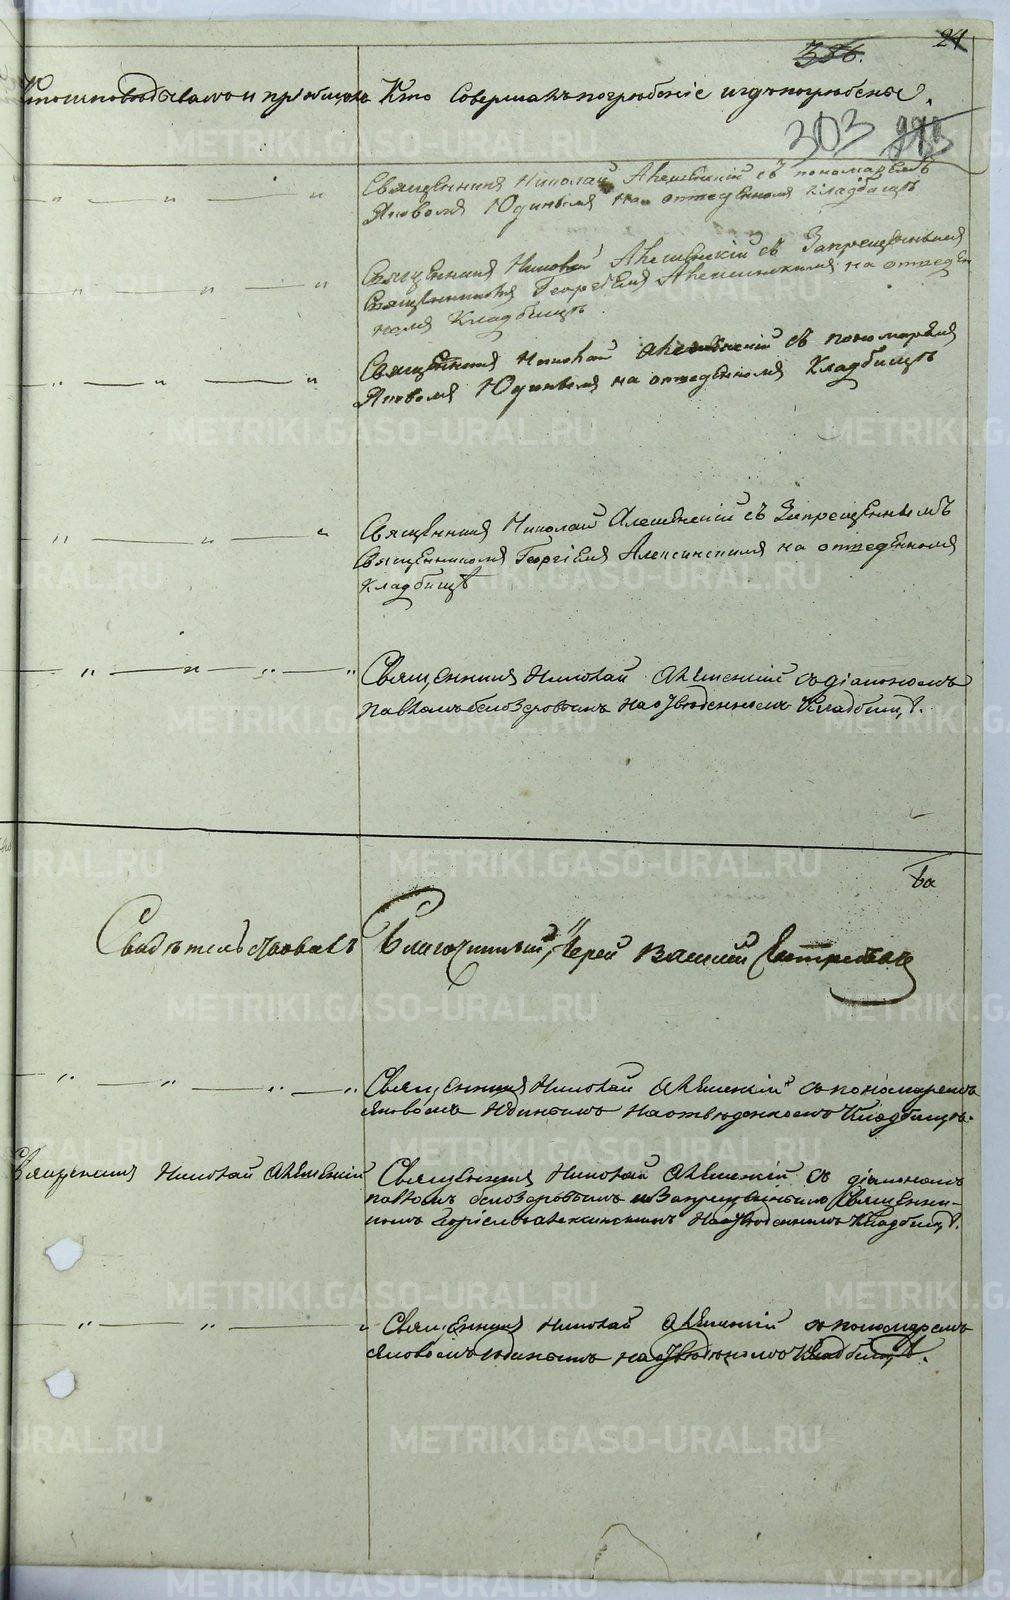 24
386.
Кто исповѣдывалъ и пріобщалъ Кто Совершалъ погребеніе и гдѣ погребены.
303
Священникъ Николай Алешенскій съ пономаремъ
Яковомъ Юдинымъ на отведенномъ кладбищѣ
Священникъ Николай Алешенскій съ Запрещеннымъ
Священникомъ Георгіемъ Алексинскимъ на отведен
номъ Кладбищѣ.
Священникъ Николай Алешенскій съ пономаремъ
Яковомъ Юдинымъ на отведенномъ Кладбищѣ
Священникъ Николай Алешенскій съ Запрещеннымъ
Священникомъ Георгіемъ Алексинскимъ на отведенномъ
Кладбищѣ
Священникъ Николай Алешенскій съ діакономъ
Павломъ Белозеровымъ на отведенномъ Кладбищѣ.
Свидѣтельствовалъ Благочинный, Іерей Василий
Священникъ Николай Алешенскій съ пономаремъ
Яковомъ Юдинымъ на отведенномъ Кладбищѣ.
Священникъ Николай Алешенскій Священникъ Николай Алешенскій съ діакономъ
Павломъ Белозеровымъ и Запрещеннымъ Священни-
комъ Георгіемъ Алексинскимъ на отведенномъ Кладбищѣ.
Священникъ Николай Алешенскій съ пономаремъ
Яковомъ Юдинымъ на отведенномъ Кладбищѣ.
METRIKI.GASO-URAL.RU